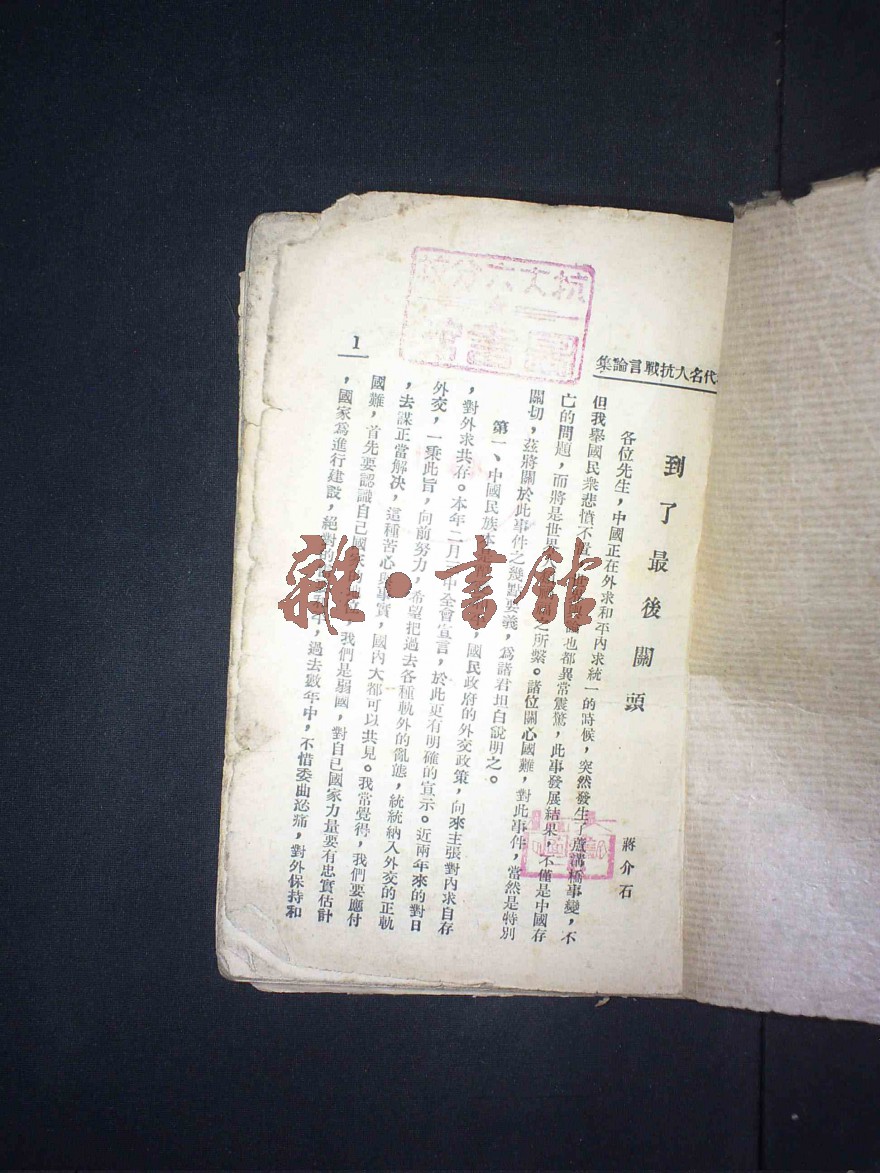 代名人抗戰言論集
到了最後關頭
蔣介石
各位先生，中國正在外求和平內求統一的時候，突然發生了蘆溝橋事變，不
但我舉國民衆悲憤不 世界 也都異常震驚，此事發展結果，不僅是中國存
亡的問題，而將是世界人 之所繫。諸位關心國難，對此事件，當然是特別
關切，茲將關於此事件之幾點要義，爲諸君坦白說明之。
第一、中國民族本 ，國民政府的外交政策，向來主張對內求自存
，對外求共存。本年二月 中全會宣言，於此更有明確的宣示。近兩年來的對日
外交，一秉此旨，向前努力 希望把過去各種軌外的亂態，統統納入外交的正軌
，去謀正當解決，這種苦心與事實，國內大都可以共見。我常覺得，我們要應付
國難，首先要認識自己國 我們是弱國，對自己國家力量要有忠實估計
，國家爲進行建設，絕對的 和平，過去數年中，不惜委曲忍痛，對外保持和
1
雜·書館